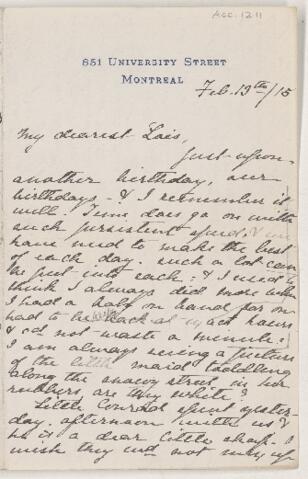 ACC. 1211
851 UNIVERSITY STREET
MONTREAL
Feb. 13th/15
My dearest Lois,
Just upon
another birthday, our
birthdays, & I remember it
well. Time does go on with
such persistent speed, & we
have need to make the best
of each day. such a lot can
be put into each: & I used to
think I always did more when
I had a baby on hand for one
had to be back at such hours
& cd not waste a minute.
I am always seeing a picture
of the little maid toddling
along the snowy street in her
rubbers, are they white?
Little Conrad spent yester-
day afternoon with us &
he is a dear little chap. I
wish they wd not